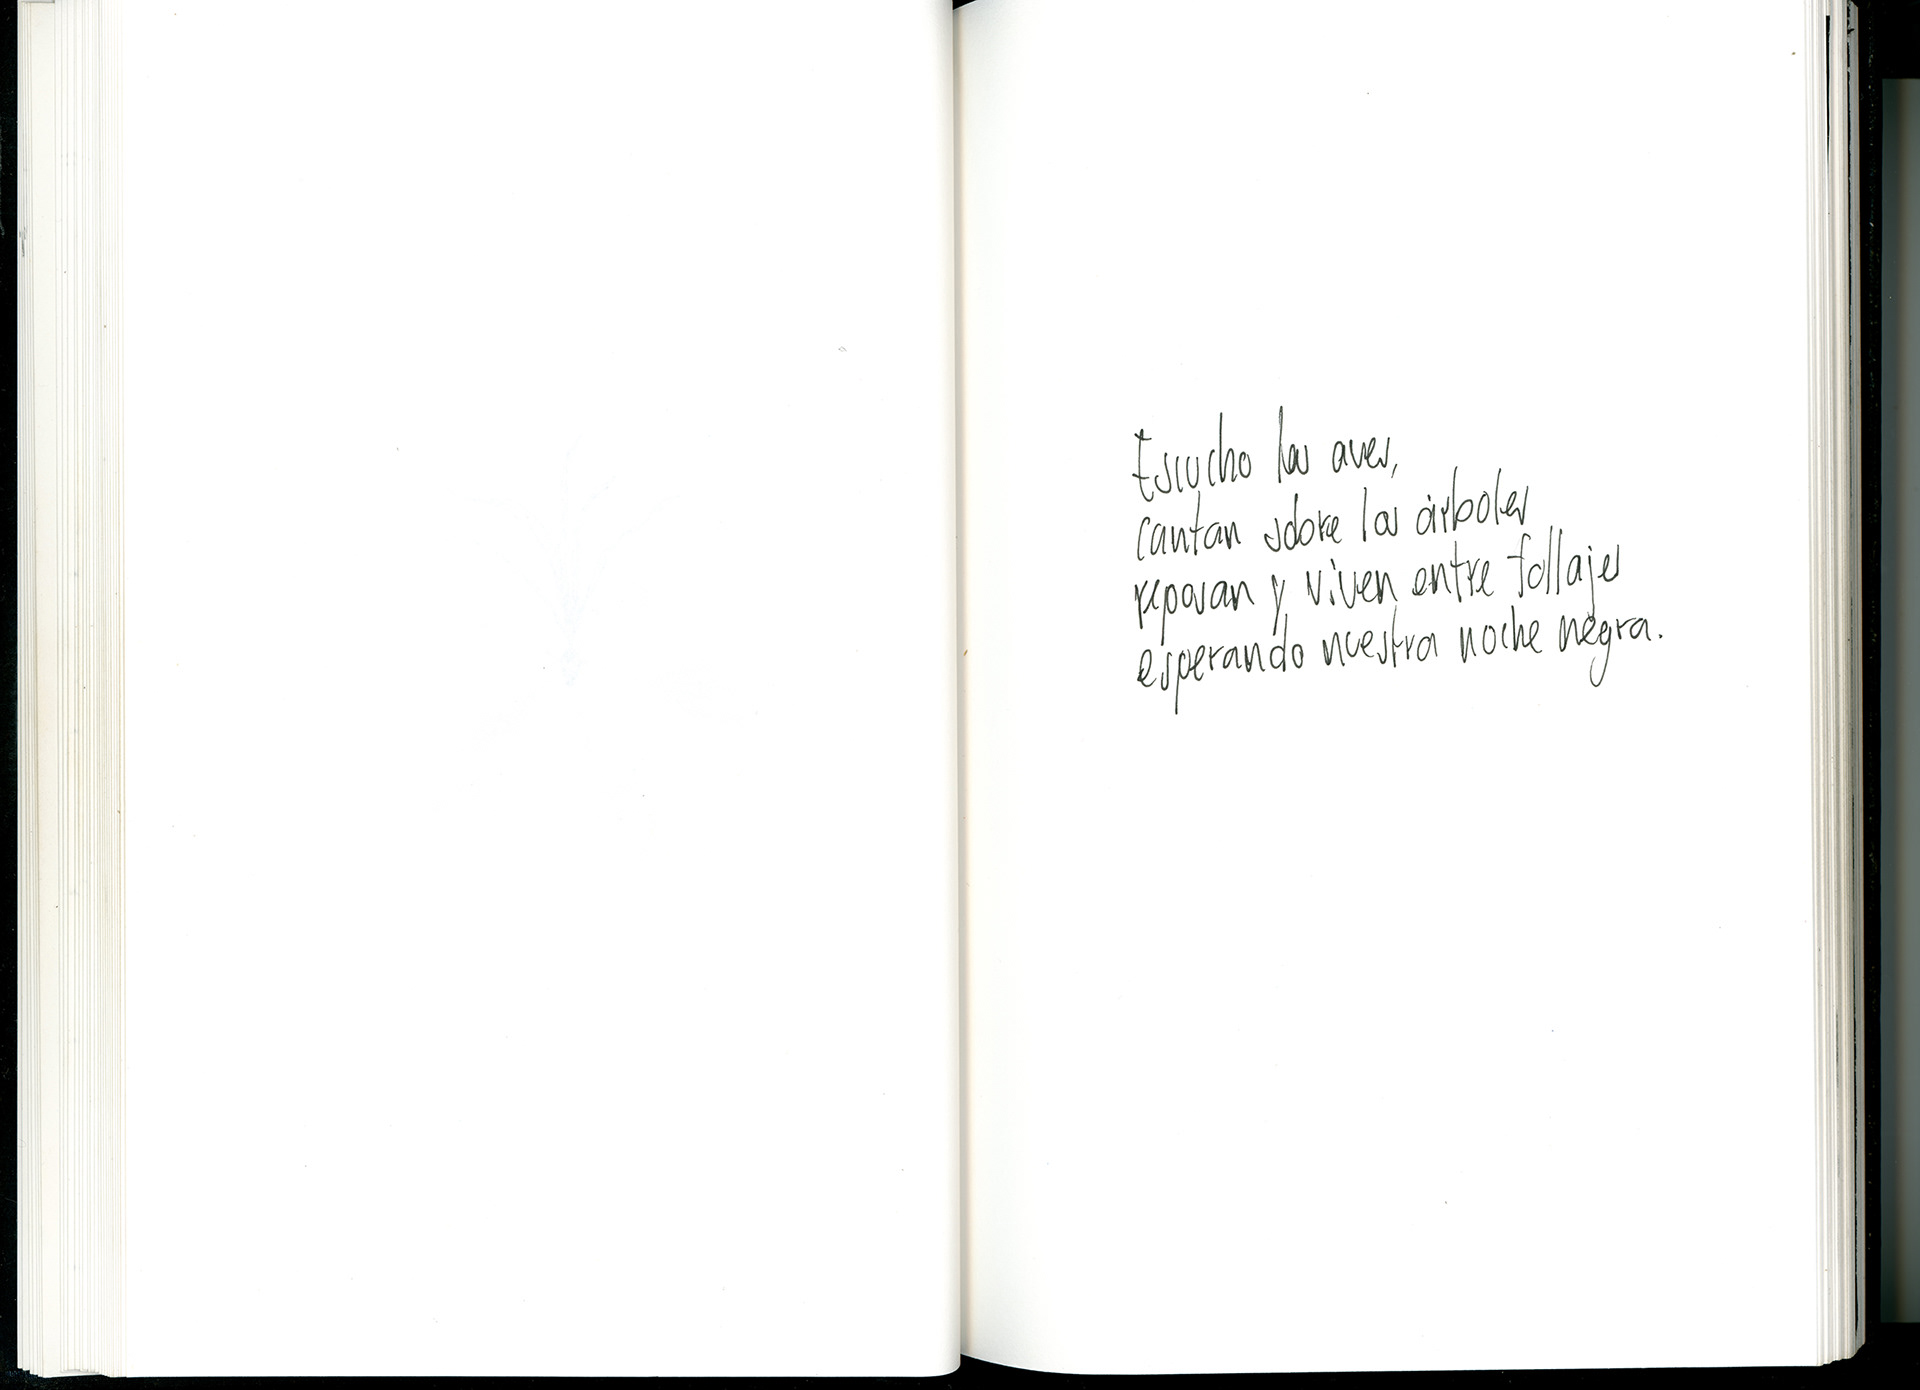 Escucho las aves,
cantan sobre los árboles
reposan y viven entre follajes
esperando nuestra noche negra.